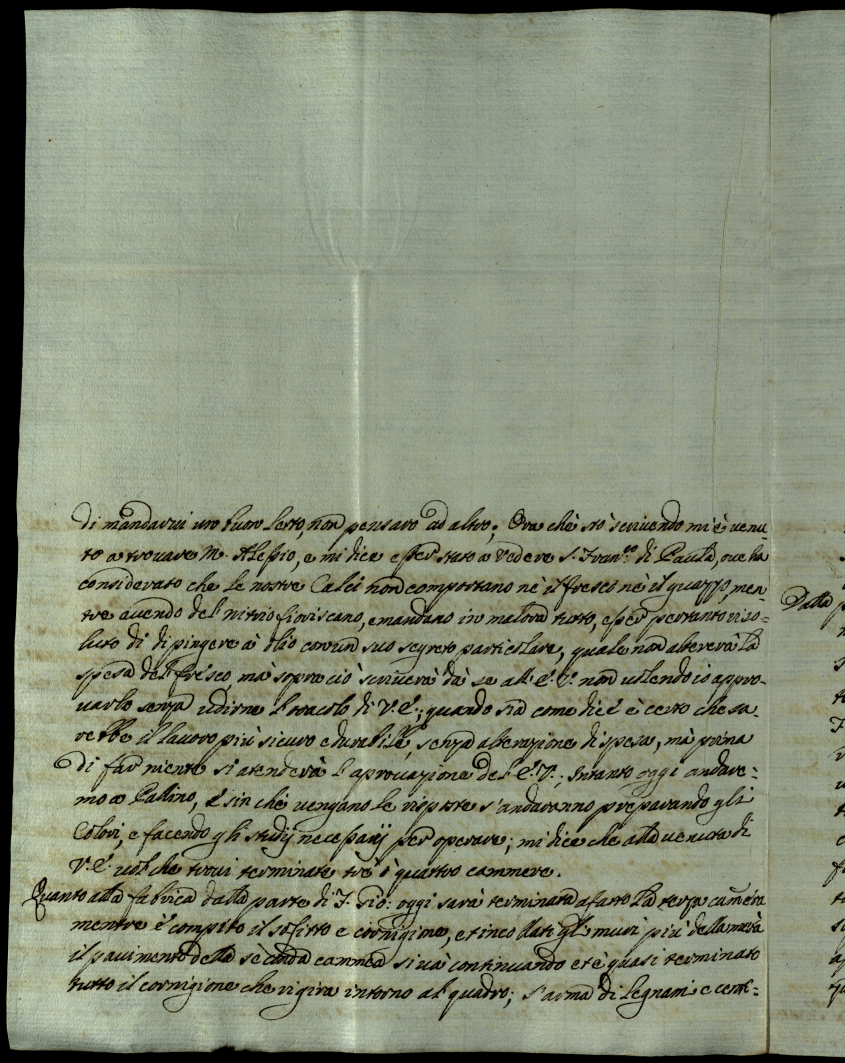 di mandarvi un buon lesto, non pensavo ad altro; Ora chè stò scrivendo mi è venu-
to a trovare M. Alessio, e mi dice esser stato a vedere S. Fran.co di Paula, ove ha
considerato che le nostre Calci non comportano nè il fresco nè il guazzo, men-
tre avendo del nitrio fioriscano, e mandano in malora tutto, e per pertanto riso-
luto di dipingere à olio con un suo segreto particolare, quale non altererà la
spesa del fresco, mà sopra ciò scriverà dà se all' E. V. non volendo io appro-
varlo senza udirne l'oracolo di V. E.; quando sia come dice è certo che sa-
rebbe il lavoro più sicuro e durabile, senza alterazione di spesa, mà prima
di far niente si atenderà l'aprovazione del E. V.; Intanto oggi andare-
mo a Pallino, e sin chè vengano le risposte s'andaranno preparando gli
Colori, e facendo gli studij necessarij per operare; mi dice che alla venuta di
V. E. vol che trovi terminate trè ò quattro cammere.
Quanto alla fabrica dalla parte di S. Gio: oggi sarà terminata afatto la terza camera
mentre è compito il sofitto e cornigione, et incollati gli muri più della metà
il pavimento della seconda cammera si và continuando et è quasi terminato
tutto il cornigione che rigira intorno al quadro; s'arma di legnami e cent-
Dalla